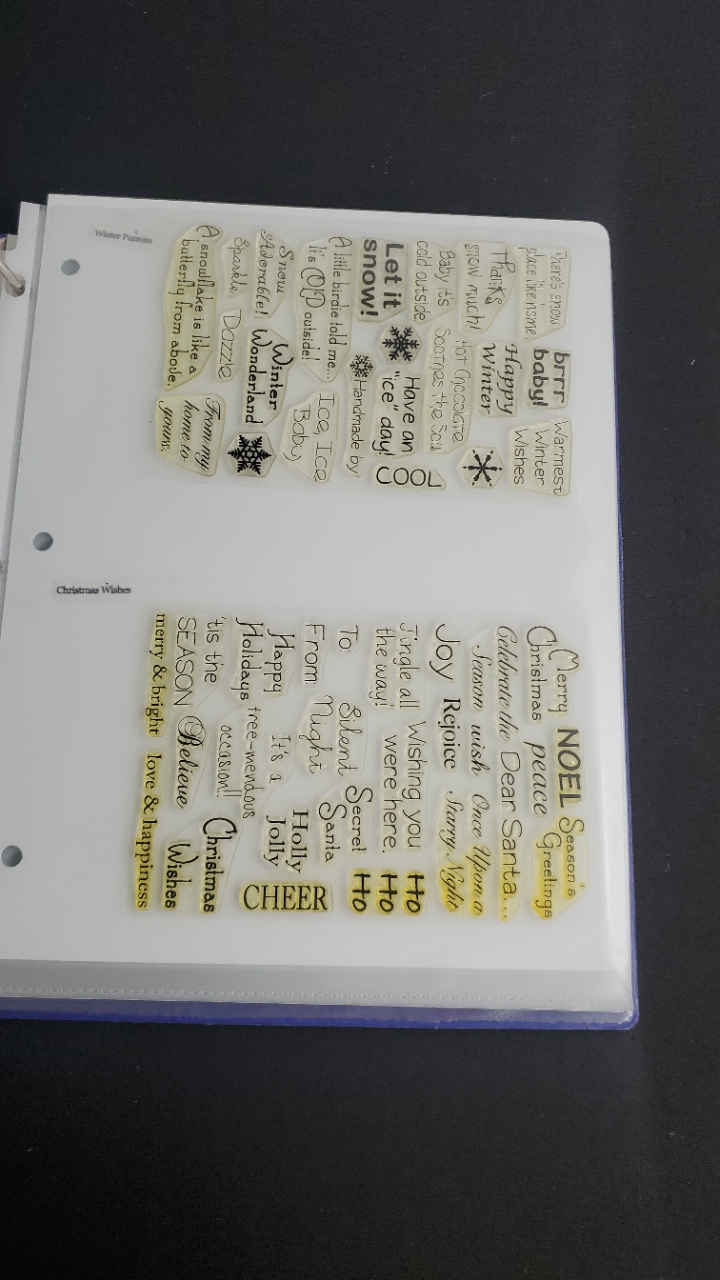 There's snow
place like home.
brrr
baby!
Warmest
Winter
Wishes
Thanks
snow much!
Happy
Winter
Baby it's
cold outside
Hot Chocolate
Soothes the Soul
Let it
snow!
Have an
"ice" day!
COOL
A little birdie told me...
It's COLD outside!
Handmade by
Ice, Ice
Baby
Snow
Adorable!
Winter
Wonderland
Sparkle
Dazzle
A snowflake is like a
butterfly from above.
From my
home to
yours.
Winter Punnies
Merry
Christmas
NOEL
peace
Season's
Greetings
Celebrate the
Season
Dear Santa...
wish
Once Upon a
Starry Night
Joy
Rejoice
Jingle all
the way!
Wishing you
were here.
Ho
Ho
Ho
To
From
Silent
Night
Secret
Santa
Happy
Holidays
It's a
tree-mendous
occasion!!
Holly
Jolly
CHEER
'tis the
SEASON
Believe
Christmas
Wishes
merry & bright
love & happiness
Christmas Wishes